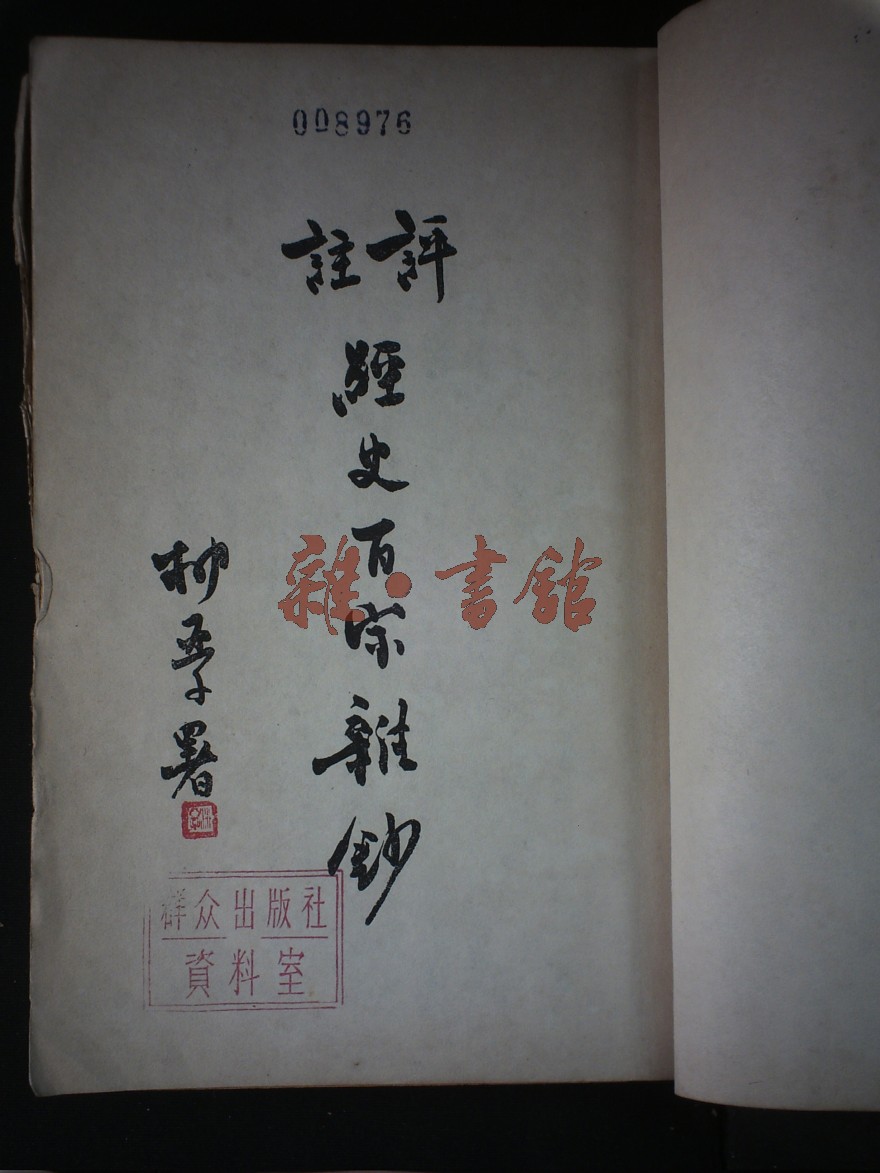 008976
評註
經史百家雜鈔
柳亞子署
雜·書館
群众出版社
資料室